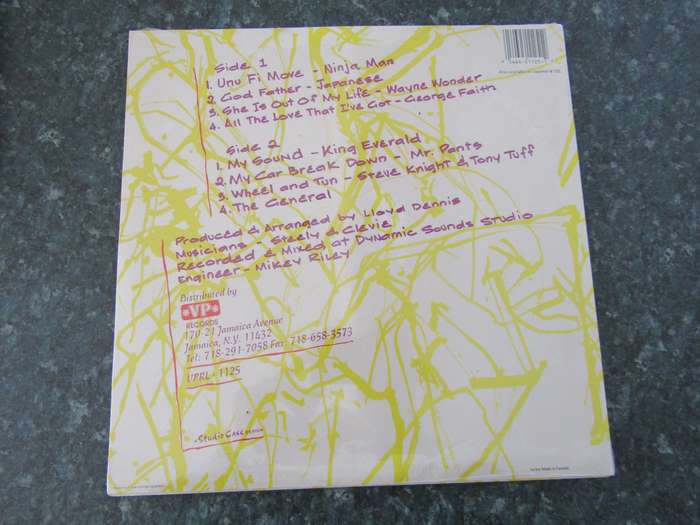 Side 1
1. Unu Fi Move - Ninja Man
2. God Father - Japanese
3. She Is Out Of My Life - Wayne Wonder
4. All The Love That I've Got - George Faith
Side 2
1. My Sound - King Everald
2. My Car Break Down - Mr. Pants
3. Wheel and Tun - Steve Knight & Tony Tuff
4. The General
Produced & Arranged by Lloyd Dennis
Musicians - Steely & Clevie
Recorded & Mixed at Dynamic Sounds Studio
Engineer - Mikey Riley
Distributed by
VP
RECORDS
170-21 Jamaica Avenue
Jamaica, N.Y. 11432
Tel: 718-291-7058 Fax: 718-658-3573
VPRL - 1125
Studio